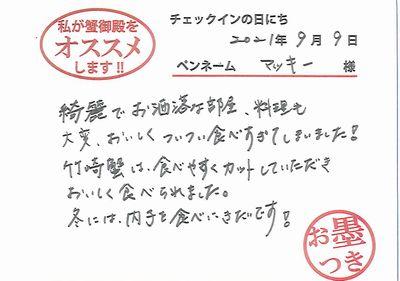 私が蟹御殿を
オススメ
します!!
チェックインの日にち
2021年9月9日
ペンネーム マッキー 様
綺麗でお洒落な部屋、料理も
大変、おいしくついつい食べすぎてしまいました!
竹崎蟹は、食べやすくカットしていただき
おいしく食べられました。
冬には、内子を食べにきたいです!
お墨
つき